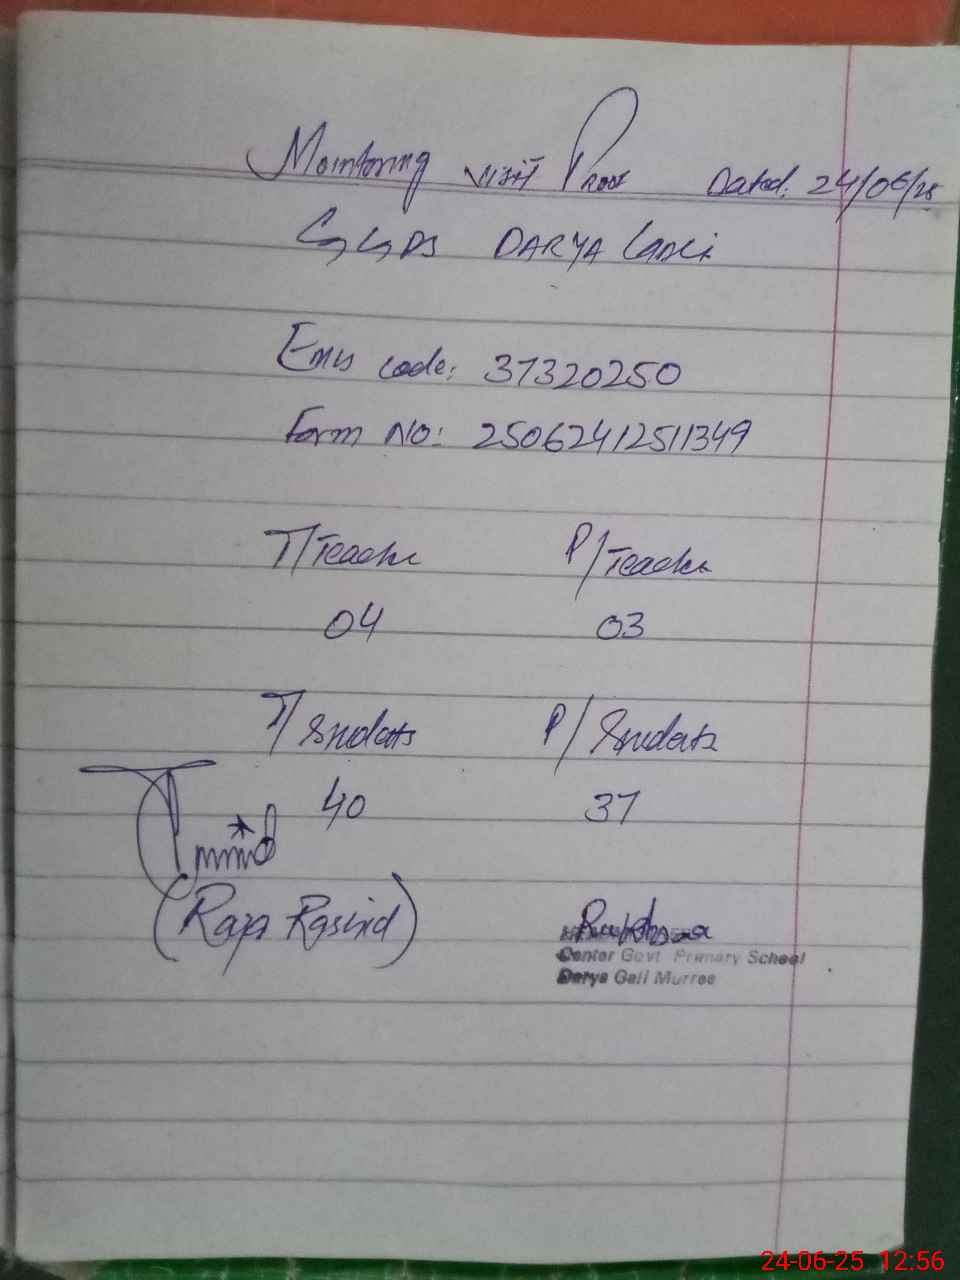 Monitoring visit Proof Dated: 24/06/25
GGPS DARYA Gali
Emis code: 37320250
Form NO: 25062412511349
T/Teacher P/Teacher
04 03
T/Students P/Students
40 37
(Raja Rashid) Rukhsana
Center Govt Primary School
Darya Gali Murree
24-06-25 12:56